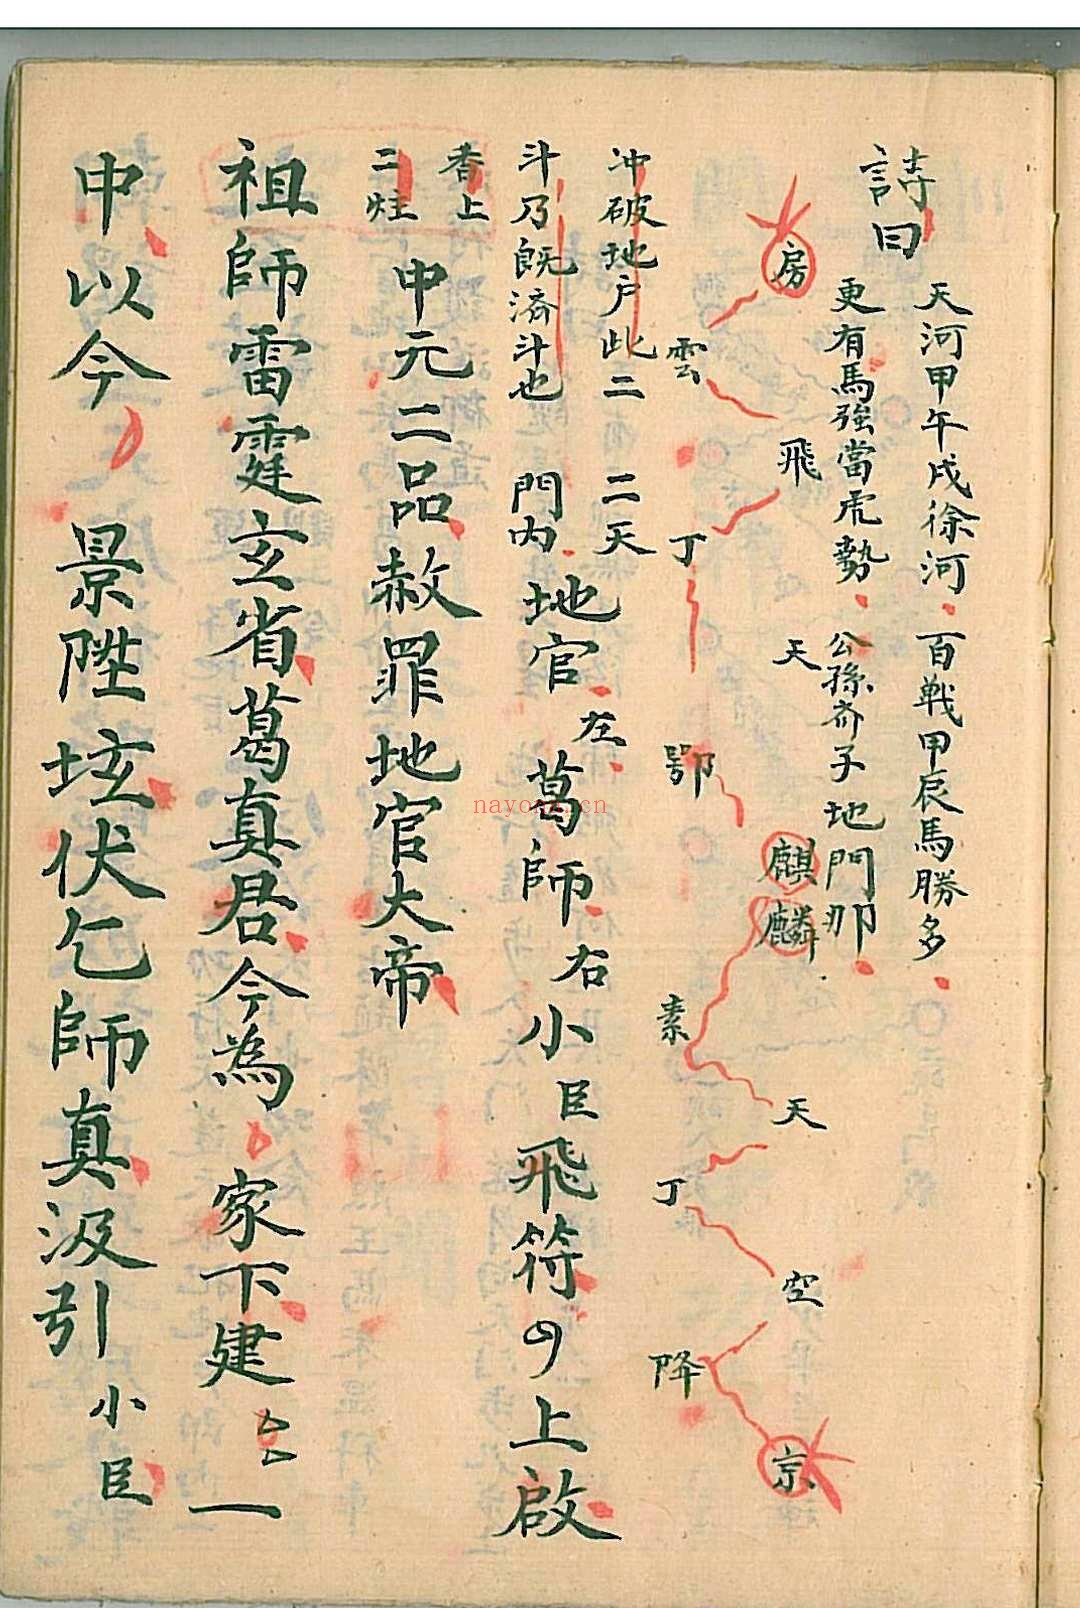 詩曰
天河甲午戌徐河百戰甲辰馬勝多
更有馬強當虎勢公孫斉子地門那
房
雲
飛
丁
天
鄂
麒
麟
素
天
丁
空
降
宗
冲破地户此二
斗乃旣済斗也
二天
門內
地官左葛師右小臣飛符の上啟
香上
二炷
中元二品赦罪地官大帝
祖師雷霆玄省葛真君今為家下建一
中以今景陞垓伏乞師真汲引小臣
nayona.cn